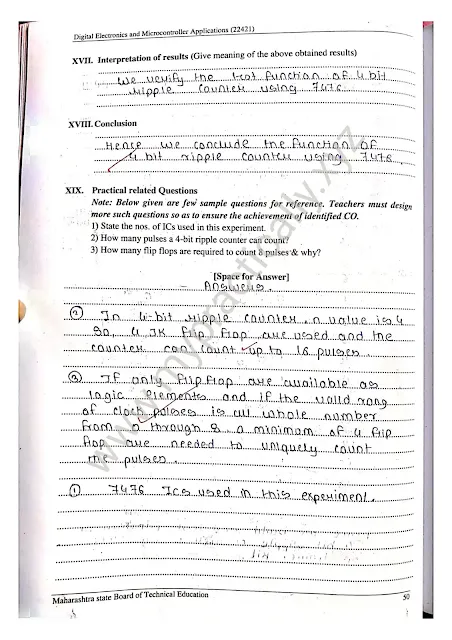 Digital Electronics and Microcontroller Applications (22421)
XVII. Interpretation of results (Give meaning of the above obtained results)
We verify the test function of 4 bit
ripple counter using 7476
XVIII. Conclusion
Hence we conclude the function of
4 bit ripple counter using 7476.
XIX. Practical related Questions
Note: Below given are few sample questions for reference. Teachers must design
more such questions so as to ensure the achievement of identified CO.
1) State the nos. of ICs used in this experiment.
2) How many pulses a 4-bit ripple counter can count?
3) How many flip flops are required to count 8 pulses & why?
[Space for Answer]
- Answers.
② In 4-bit ripple counter n value is 4
so, 4 JK flip flop are used and the
counter can count up to 16 pulses.
③ If only flip flop are available as
logic elements and if the valid rang
of clock pulses is all whole number
from 0 through 8. a minimum of 4 flip
flop are needed to uniquely count
the pulses.
① 7476 ICs used in this experiment.
Maharashtra state Board of Technical Education
50
www.mypractically.xyz